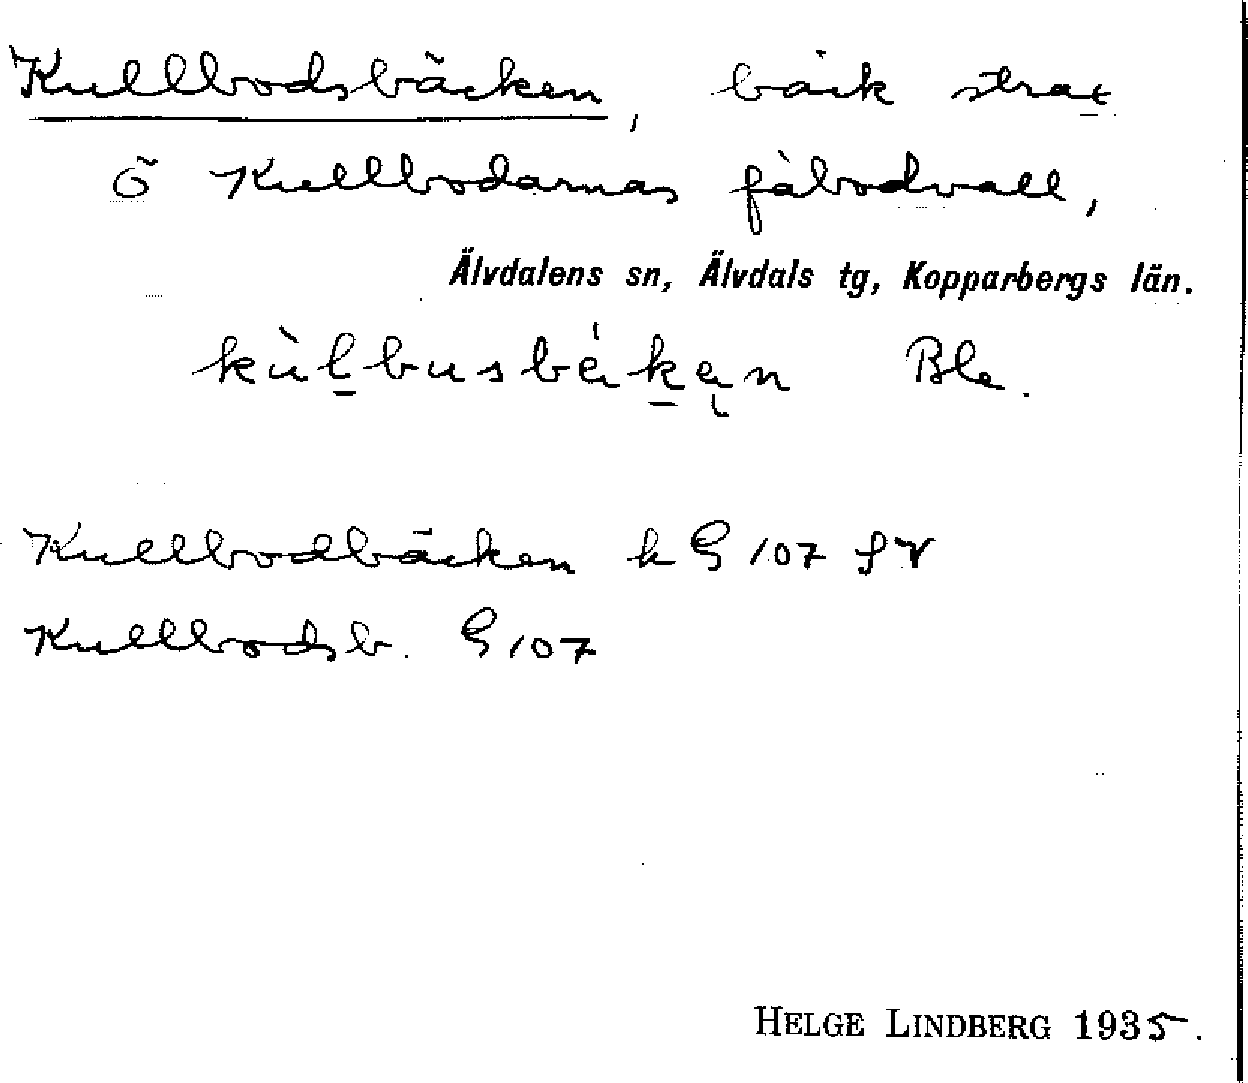 Kullbodsbäcken, bäck strax
Ö Kullbodarnas fäbodvall,
Älvdalens sn, Älvdals tg, Kopparbergs län.
kùl̠busbɛ́k̠ən Ble.
Kullbodbäcken k G 107 SV
Kullbodsb. G 107
HELGE LINDBERG 1935.